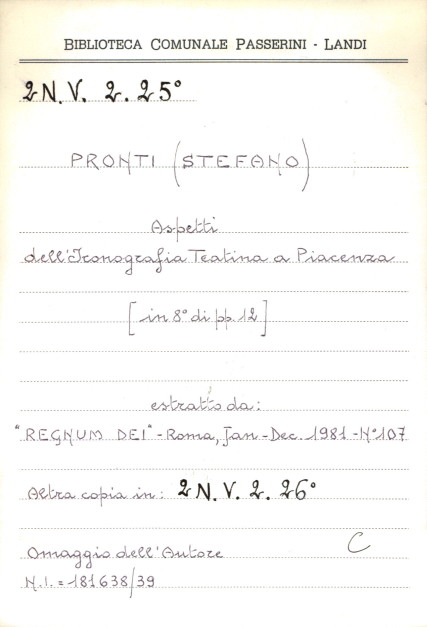 BIBLIOTECA COMUNALE PASSERINI - LANDI
2 N. V. 2. 25°
PRONTI (STEFANO)
Aspetti
dell'Iconografia Teatina a Piacenza
[in 8° di pp. 12]
estratto da:
"REGNUM DEI" - Roma, Jan - Dec. 1981 - N° 107
Altra copia in: 2 N. V. 2. 26°
Omaggio dell'Autore C
N.I. = 181638/39